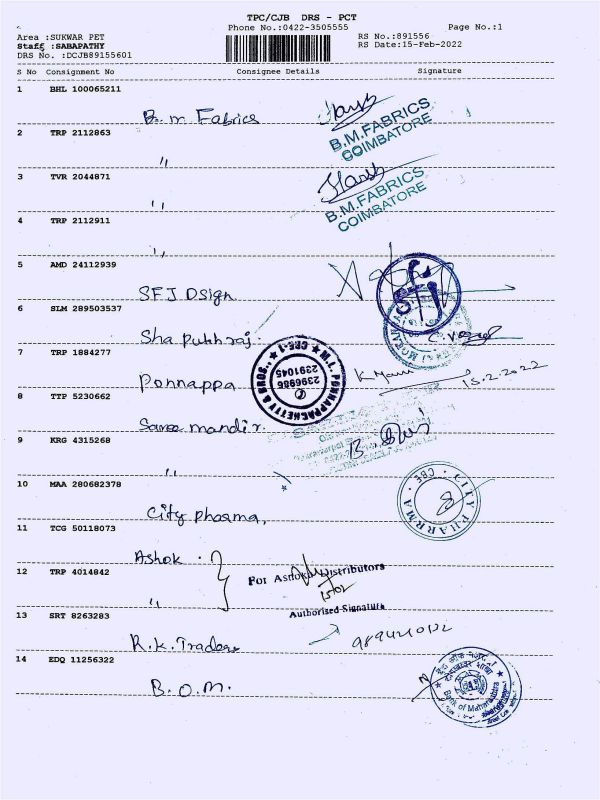 TPC/CJB DRS - PCT
Phone No.:0422-3505555 Page No.:1
Area :SUKWAR PET RS No.:891556
Staff :SABAPATHY RS Date:15-Feb-2022
DRS No. :DCJB89155601
S No Consignment No Consignee Details Signature
1 BHL 100065211
B.m Fabrics
Harsh
B.M.FABRICS
COIMBATORE
2 TRP 2112863
〃
3 TVR 2044871
Harsh
B.M.FABRICS
COIMBATORE
〃
4 TRP 2112911
〃
5 AMD 24112939
SFJ Dsign
SFJ
6 SLM 289503537
Sha Pukhraj.
7 TRP 1884277
Ponnappa
M.T. PONNAPPACHETTY & SONS
CBE-1
2396986
2391045
K Mani
15.2.2022
8 TTP 5230662
Saree mandir.
9 KRG 4315268
〃
10 MAA 280682378
City pharma,
CITY PHARMA
CBE
11 TCG 50118073
Ashok
12 TRP 4014842
〃
For Ashok Distributors
15/02
Authorised Signature
13 SRT 8263283
R.K. Traders
14 EDQ 11256322
B.O.M.
Bank of Maharashtra